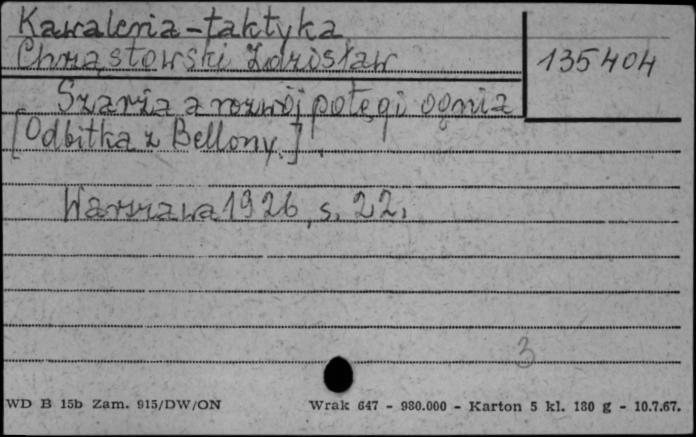 Kawaleria-taktyka
Chrząstowski Zdzisław
135404
Szarża a rozwój potęgi ognia
[Odbitka z Bellony.].
Warszawa 1926, s. 22.
3
WD B 15b Zam. 915/DW/ON
Wrak 647 - 980.000 - Karton 5 kl. 180 g - 10.7.67.